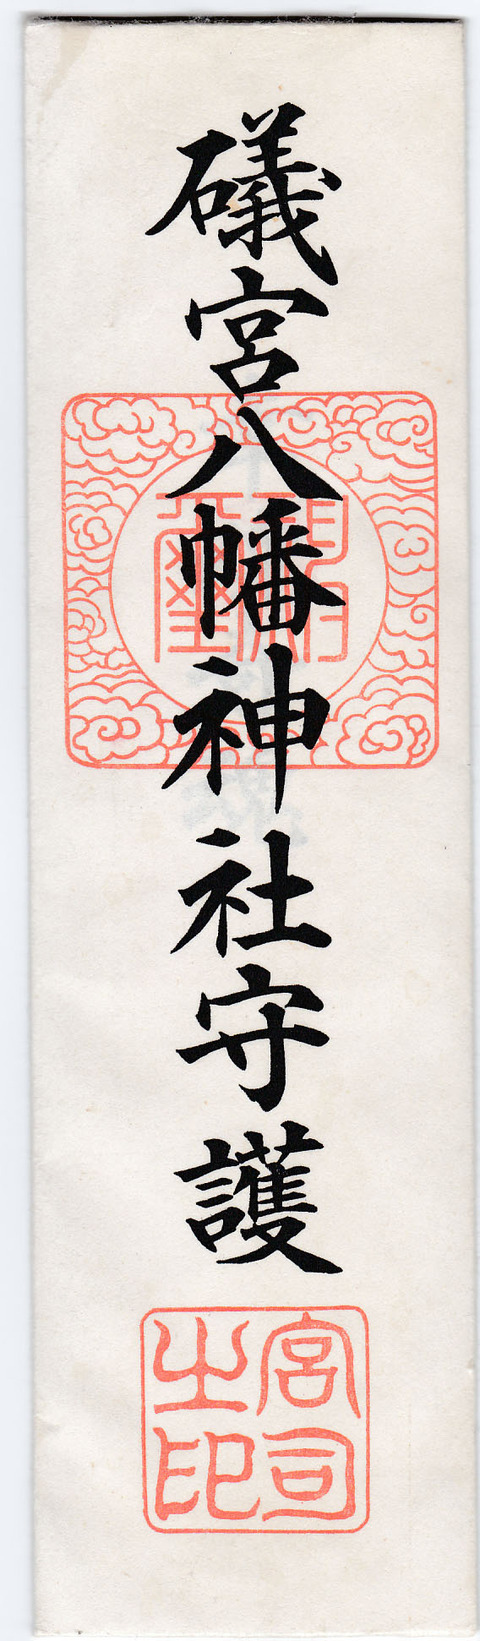 礒宮八幡神社守護
宮司
之印